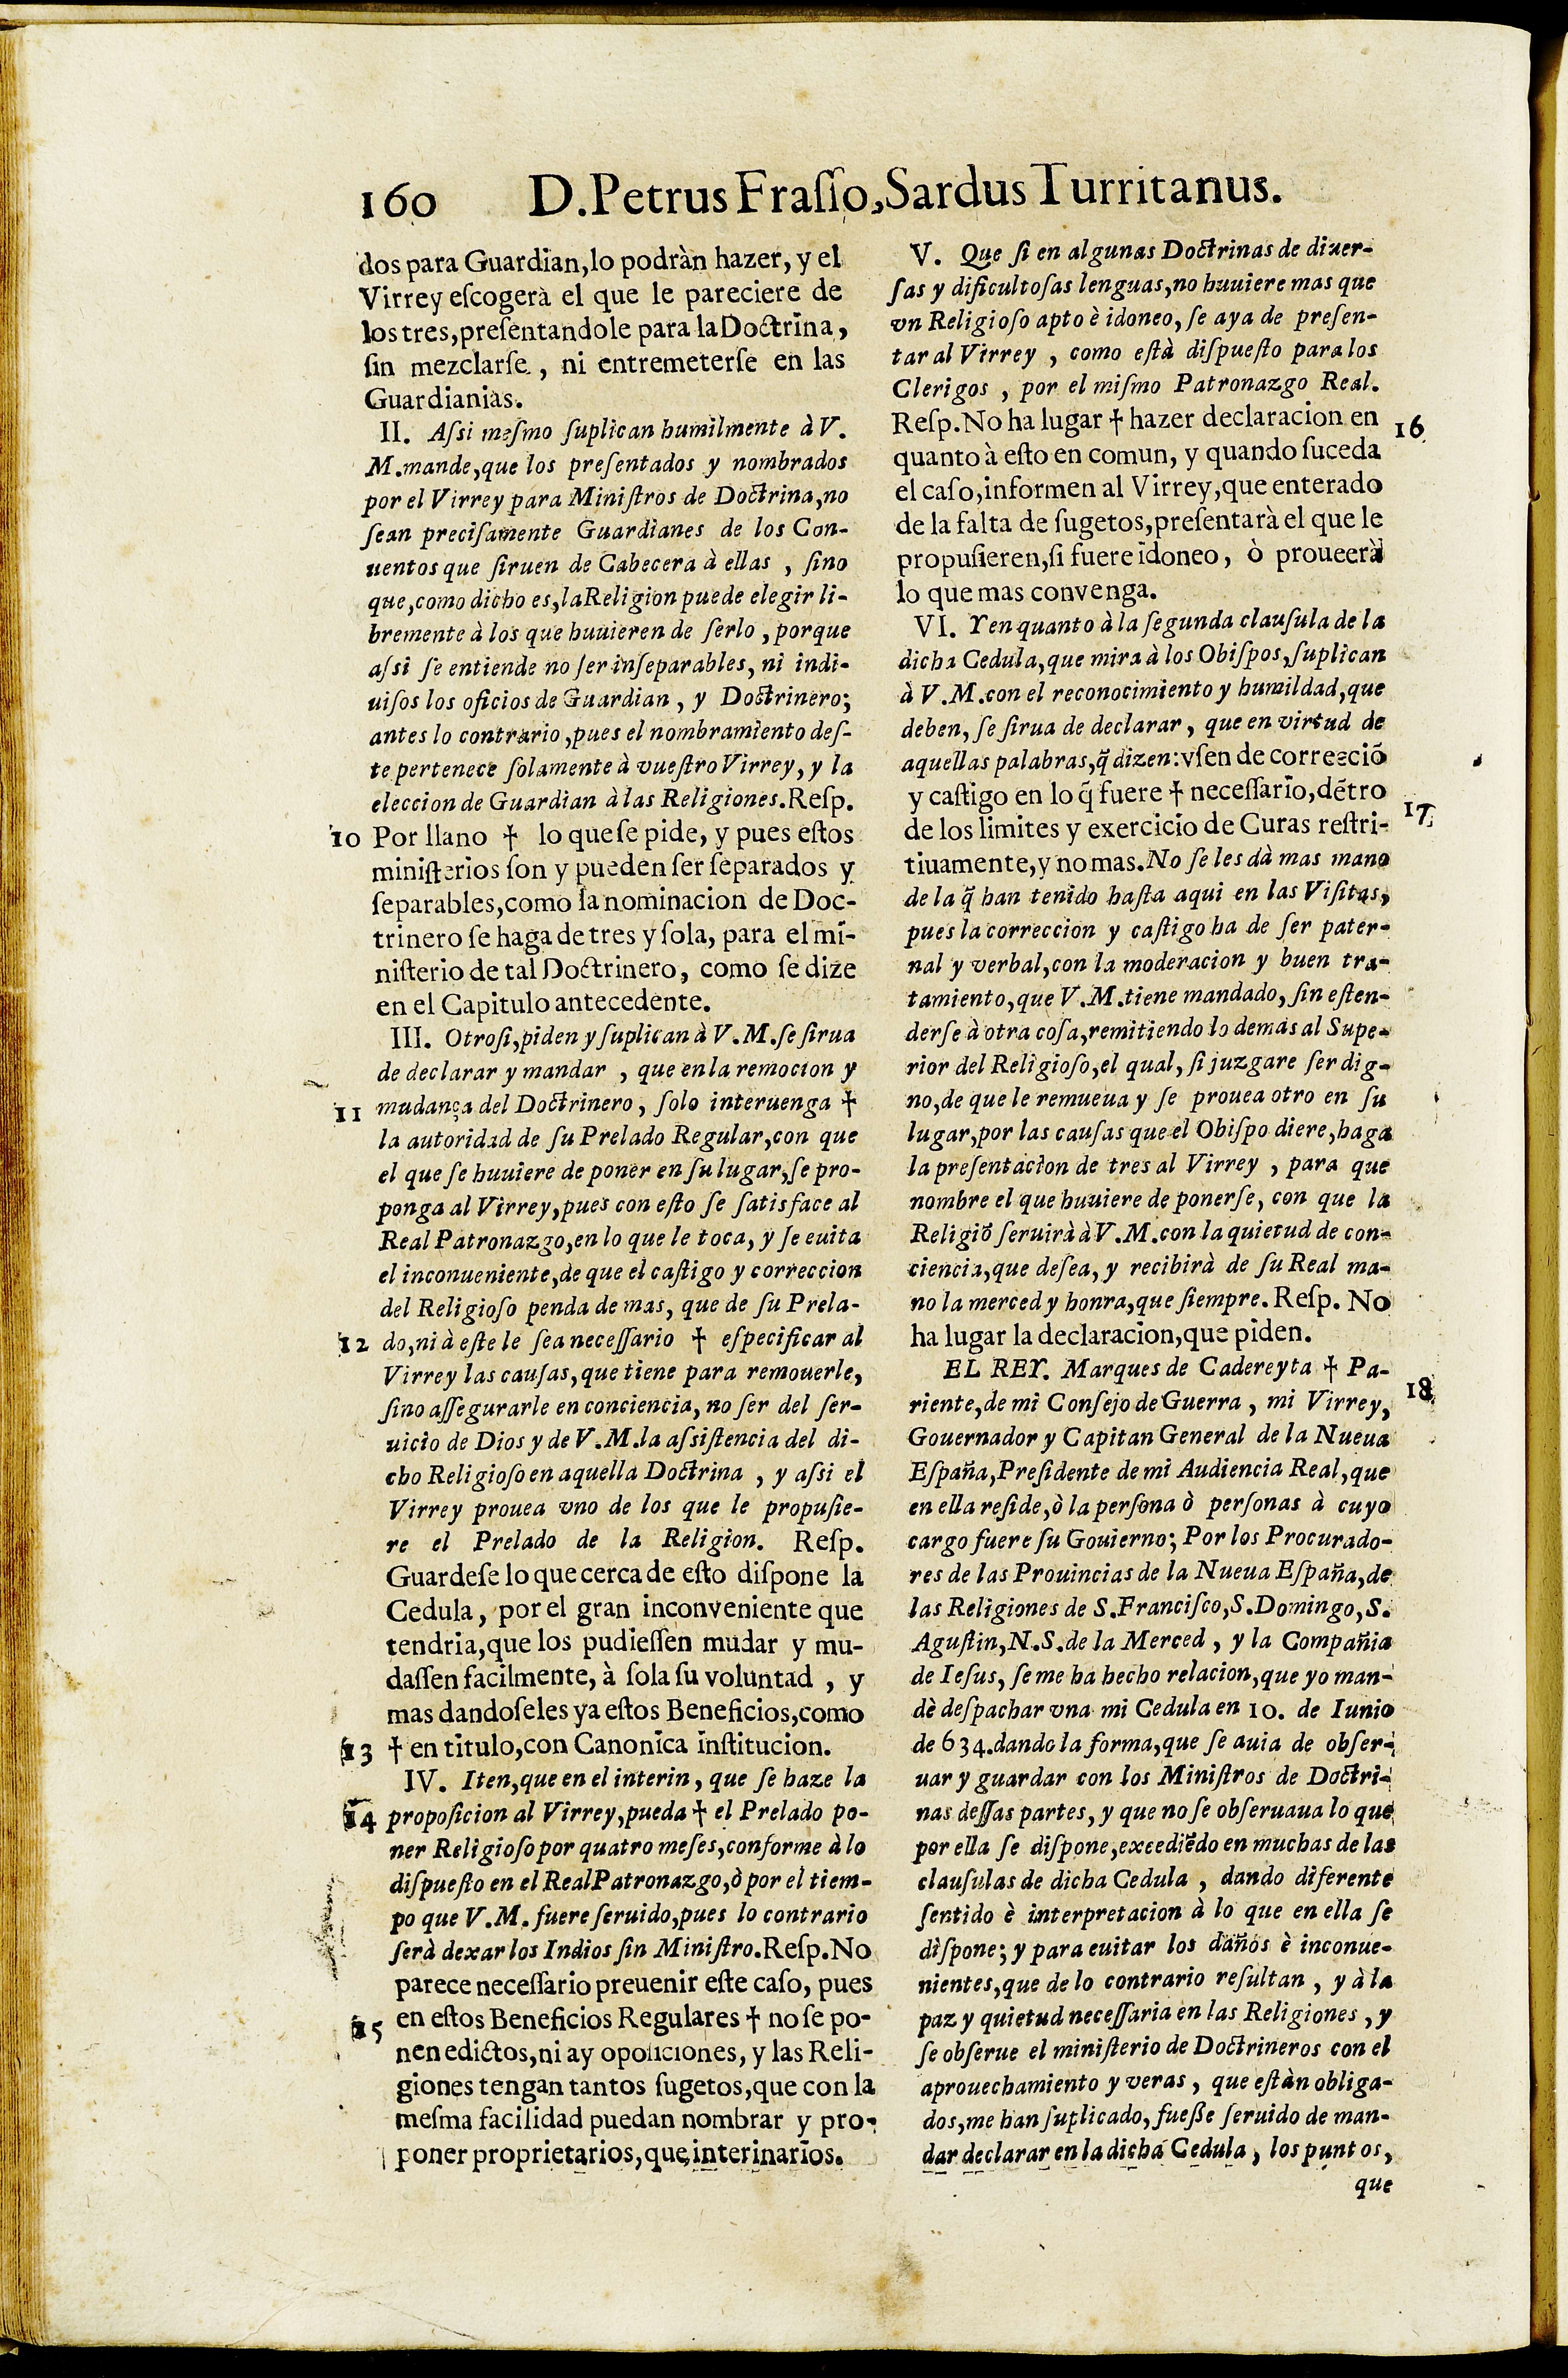 160 D. Petrus Frasso, Sardus Turritanus.
dos para Guardian, lo podràn hazer, y el
Virrey eſcogerà el que le pareciere de
los tres, preſentandole para la Doctrina,
ſin mezclarſe, ni entremeterſe en las
Guardianias.
II. Aſsi meſmo ſuplican humilmente à V.
M. mande, que los preſentados y nombrados
por el Virrey para Miniſtros de Doctrina, no
ſean preciſamente Guardianes de los Con-
uentos que ſiruen de Cabecera à ellas, ſino
que, como dicho es, la Religion puede elegir li-
bremente à los que huuieren de ſerlo, porque
aſsi ſe entiende no ſer inſeparables, ni indi-
uiſos los oficios de Guardian, y Doctrinero;
antes lo contrario, pues el nombramiento deſ-
te pertenece ſolamente à vueſtro Virrey, y la
eleccion de Guardian à las Religiones. Reſp.
10 Por llano † lo que ſe pide, y pues eſtos
miniſterios ſon y pueden ſer ſeparados y
ſeparables, como la nominacion de Doc-
trinero ſe haga de tres y ſola, para el mi-
niſterio de tal Doctrinero, como ſe dize
en el Capitulo antecedente.
III. Otroſi, piden y ſuplican à V. M. ſe ſirua
de declarar y mandar, que en la remocion y
11 mudança del Doctrinero, ſolo interuenga †
la autoridad de ſu Prelado Regular, con que
el que ſe huuiere de poner en ſu lugar, ſe pro-
ponga al Virrey, pues con eſto ſe ſatisface al
Real Patronazgo, en lo que le toca, y ſe euita
el inconueniente, de que el caſtigo y correccion
del Religioſo penda de mas, que de ſu Prela-
12 do, ni à eſte le ſea neceſſario † eſpecificar al
Virrey las cauſas, que tiene para remouerle,
ſino aſſegurarle en conciencia, no ſer del ſer-
uicio de Dios y de V. M. la aſsiſtencia del di-
cho Religioſo en aquella Doctrina, y aſsi el
Virrey prouea vno de los que le propuſie-
re el Prelado de la Religion. Reſp.
Guardeſe lo que cerca de eſto diſpone la
Cedula, por el gran inconveniente que
tendria, que los pudieſſen mudar y mu-
daſſen facilmente, à ſola ſu voluntad, y
mas dandoſeles ya eſtos Beneficios, como
13 † en titulo, con Canonica inſtitucion.
IV. Iten, que en el interin, que ſe haze la
14 propoſicion al Virrey, pueda † el Prelado po-
ner Religioſo por quatro meſes, conforme à lo
diſpueſto en el Real Patronazgo, ò por el tiem-
po que V. M. fuere ſeruido, pues lo contrario
ſerà dexar los Indios ſin Miniſtro. Reſp. No
parece neceſſario preuenir eſte caſo, pues
15 en eſtos Beneficios Regulares † no ſe po-
nen edictos, ni ay opoſiciones, y las Reli-
giones tengan tantos ſugetos, que con la
meſma facilidad puedan nombrar y pro-
poner proprietarios, que interinarios.
V. Que ſi en algunas Doctrinas de diuer-
ſas y dificultoſas lenguas, no huuiere mas que
vn Religioſo apto è idoneo, ſe aya de preſen-
tar al Virrey, como eſtà diſpueſto para los
Clerigos, por el miſmo Patronazgo Real.
Reſp. No ha lugar † hazer declaracion en 16
quanto à eſto en comun, y quando ſuceda
el caſo, informen al Virrey, que enterado
de la falta de ſugetos, preſentarà el que le
propuſieren, ſi fuere idoneo, ò proueerà
lo que mas convenga.
VI. Y en quanto à la ſegunda clauſula de la
dicha Cedula, que mira à los Obiſpos, ſuplican
à V. M. con el reconocimiento y humildad, que
deben, ſe ſirua de declarar, que en virtud de
aquellas palabras, q̃ dizen: vſen de correcciõ
y caſtigo en lo q̃ fuere † neceſſario, dẽtro 17
de los limites y exercicio de Curas reſtri-
tiuamente, y no mas. No ſe les dà mas mano
de la q̃ han tenido haſta aqui en las Viſitas,
pues la correccion y caſtigo ha de ſer pater-
nal y verbal, con la moderacion y buen tra-
tamiento, que V. M. tiene mandado, ſin eſten-
derſe à otra coſa, remitiendo lo demas al Supe-
rior del Religioſo, el qual, ſi juzgare ſer dig-
no, de que le remueua y ſe prouea otro en ſu
lugar, por las cauſas que el Obiſpo diere, haga
la preſentacion de tres al Virrey, para que
nombre el que huuiere de ponerſe, con que la
Religiõ ſeruirà à V. M. con la quietud de con-
ciencia, que deſea, y recibirà de ſu Real ma-
no la merced y honra, que ſiempre. Reſp. No
ha lugar la declaracion, que piden.
EL REY. Marques de Cadereyta † Pa- 18
riente, de mi Conſejo de Guerra, mi Virrey,
Gouernador y Capitan General de la Nueua
Eſpaña, Preſidente de mi Audiencia Real, que
en ella reſide, ò la perſona ò perſonas à cuyo
cargo fuere ſu Gouierno; Por los Procurado-
res de las Prouincias de la Nueua Eſpaña, de
las Religiones de S. Franciſco, S. Domingo, S.
Aguſtin, N. S. de la Merced, y la Compañia
de Ieſus, ſe me ha hecho relacion, que yo man-
dè deſpachar vna mi Cedula en 10. de Iunio
de 634. dando la forma, que ſe auia de obſer-
uar y guardar con los Miniſtros de Doctri-
nas deſſas partes, y que no ſe obſeruaua lo que
por ella ſe diſpone, excediẽdo en muchas de las
clauſulas de dicha Cedula, dando diferente
ſentido è interpretacion à lo que en ella ſe
diſpone; y para euitar los daños è inconue-
nientes, que de lo contrario reſultan, y à la
paz y quietud neceſſaria en las Religiones, y
ſe obſerue el miniſterio de Doctrineros con el
aprouechamiento y veras, que eſtàn obliga-
dos, me han ſuplicado, fueſſe ſeruido de man-
dar declarar en la dicha Cedula, los puntos,
que